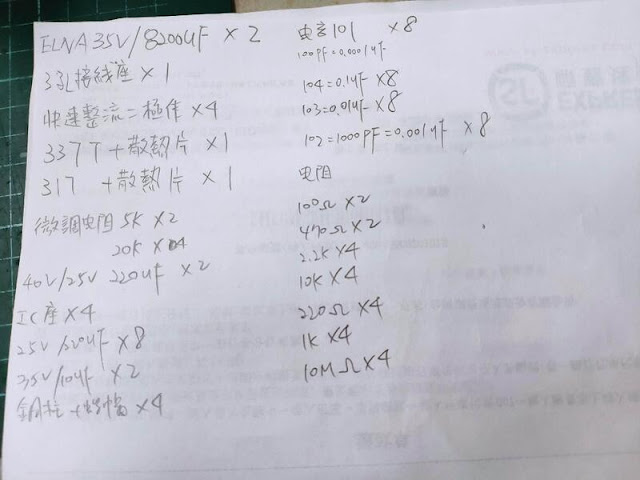 ELNA 35V/8200uF × 2
3引接線座 × 1
快速整流二極体 × 4
337T + 散熱片 × 1
317 + 散熱片 × 1
微調电阻 5K × 2
20K × 4
40V/25V 220uF × 2
IC座 × 4
25V/220uF × 8
35V/10uF × 2
銅柱 + 螺帽 × 4
电容101 × 8
100pF=0.0001uF
104=0.1uF × 8
103=0.01uF × 8
102=1000PF=0.001uF × 8
电阻
100Ω × 2
470Ω × 2
2.2K × 4
10K × 4
220Ω × 4
1K × 4
10MΩ × 4